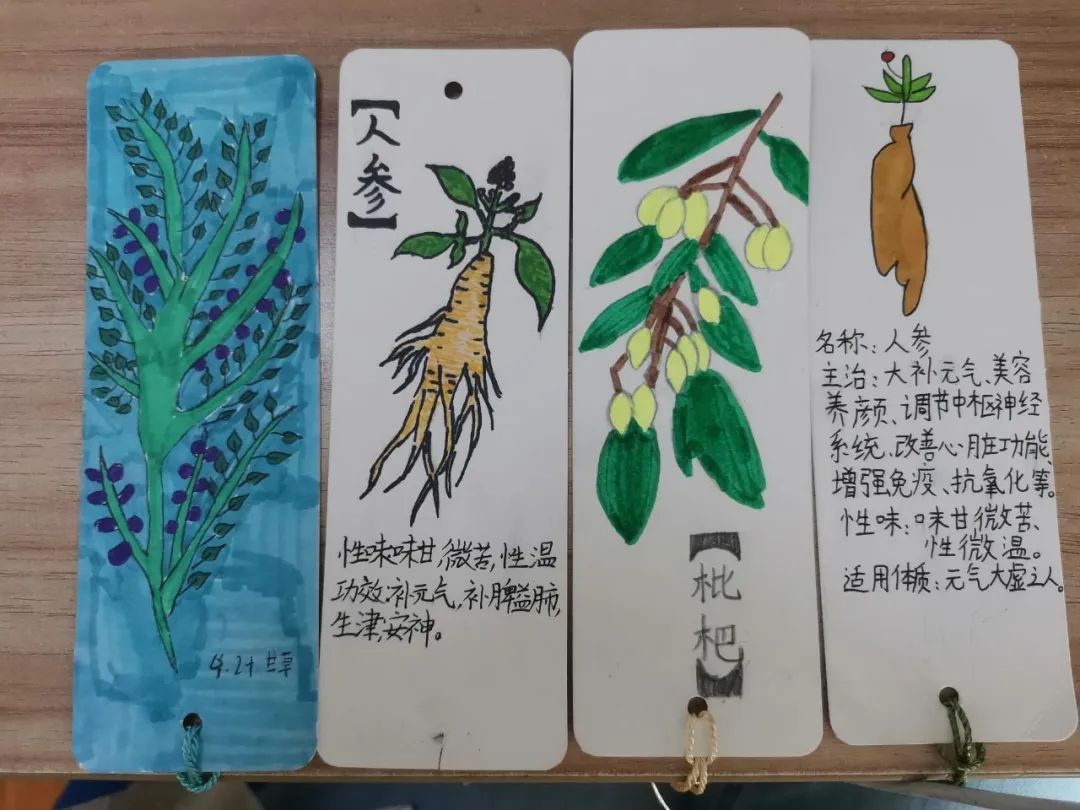 【人参】
性味味甘,微苦,性温
功效:补元气,补脾益肺,
生津,安神。
【枇杷】
名称:人参
主治:大补元气、美容
养颜、调节中枢神经
系统、改善心脏功能、
增强免疫、抗氧化等。
性味:味甘微苦、
性微温。
适用体质:元气大虚之人。